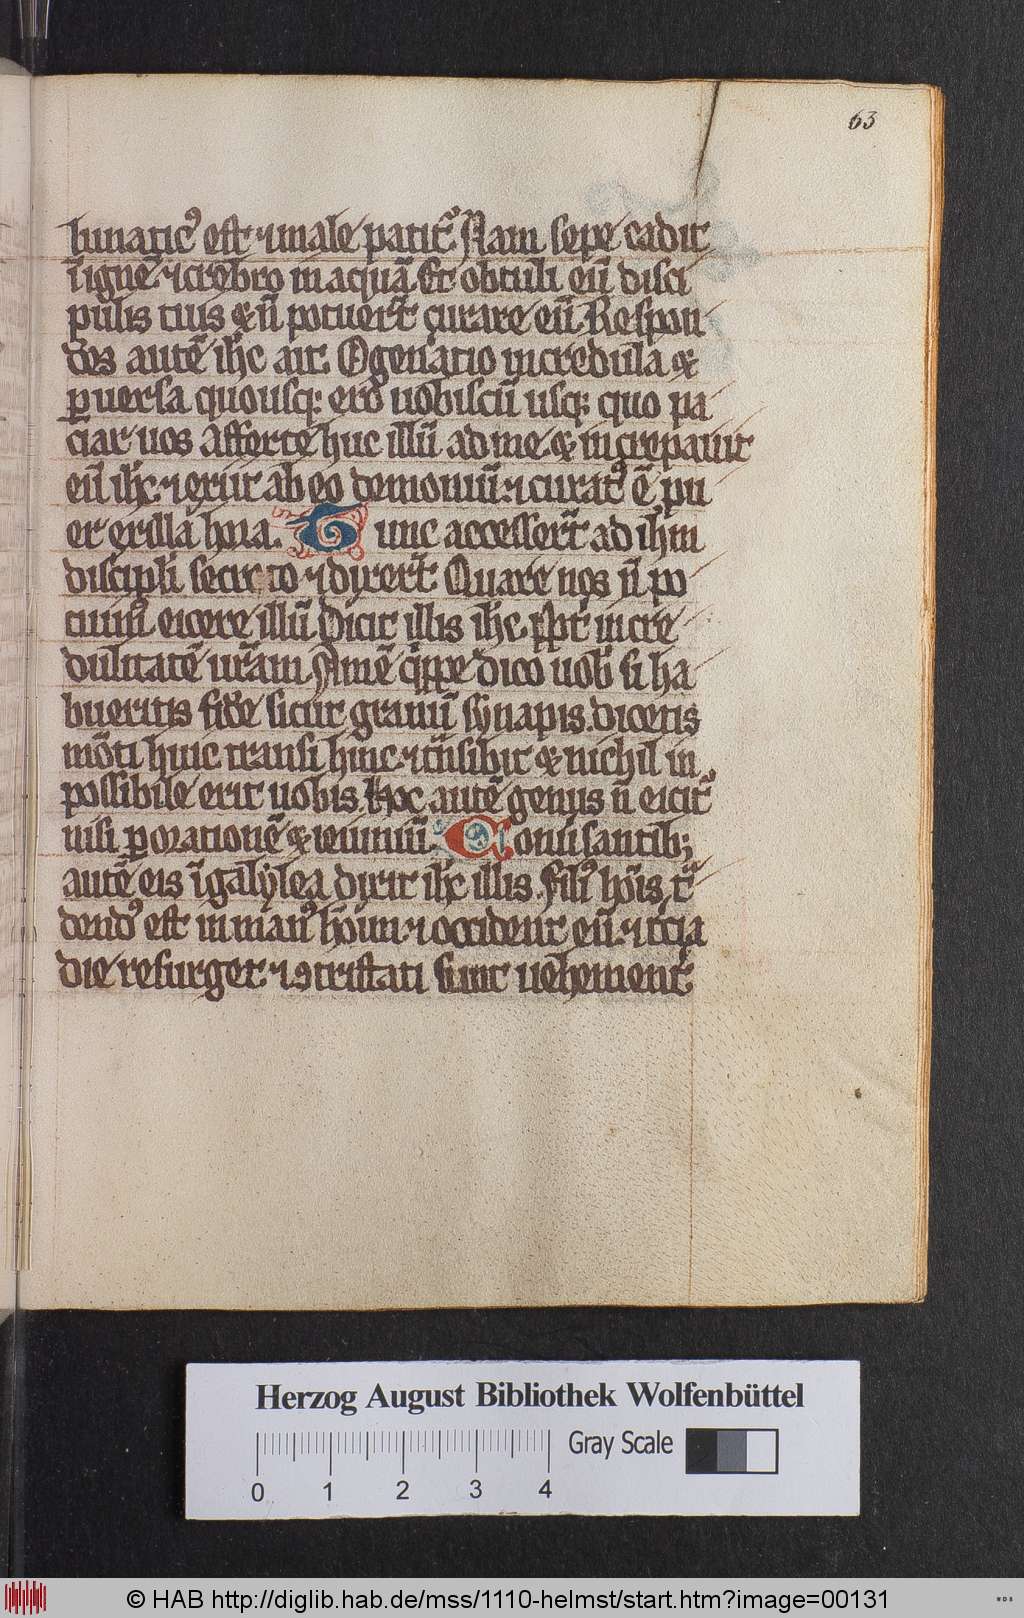 63
lunaticꝰ est ⁊ male patit᷑. Nam sepe cadit
ī ignē. ⁊ crebro in aquā. Et obtuli eū disci
pulis tuis & n̄ potuer̄t curare eū. Respon
dēs autē ih̄c ait. O gen̄atio incredula &
ꝑuersa quousq; ero uobiscū usq; quo pa
ciar uos Afferte huc illū ad me. & increpauit
eū ih̄c. ⁊ exiit ab eo demoniū. ⁊ curatꝰ ē pu
er ex illa hora. Tunc accesser̄t ad ih̄m
discipli secreto ⁊ dixer̄t. Quare nos n̄ po
tuimꝰ eicere illū. Dicit illis ih̄c. ꝓpt̄ incre
dulitatē ur̄am. Amē q̇ppe dico uob̄ si ha
bueritis fidē sicut granū synapis. dicetis
mōti huic transi hinc. ⁊ t̄nsibit & nichil in
possibile erit uobis. Hoc autē genus n̄ eicit᷑
nisi ꝑ orationē & ieiuniū. Conūsantib;
autē eis ī galylea dixit ih̄c illis. filiꝰ hōis t̄
dendꝰ est in manꝰ hōim. ⁊ occident eū. ⁊ t̄cia
die resurget. ⁊ ꝯtristati sunt uehement̄.
Herzog August Bibliothek Wolfenbüttel
Gray Scale
0 1 2 3 4
© HAB http://diglib.hab.de/mss/1110-helmst/start.htm?image=00131